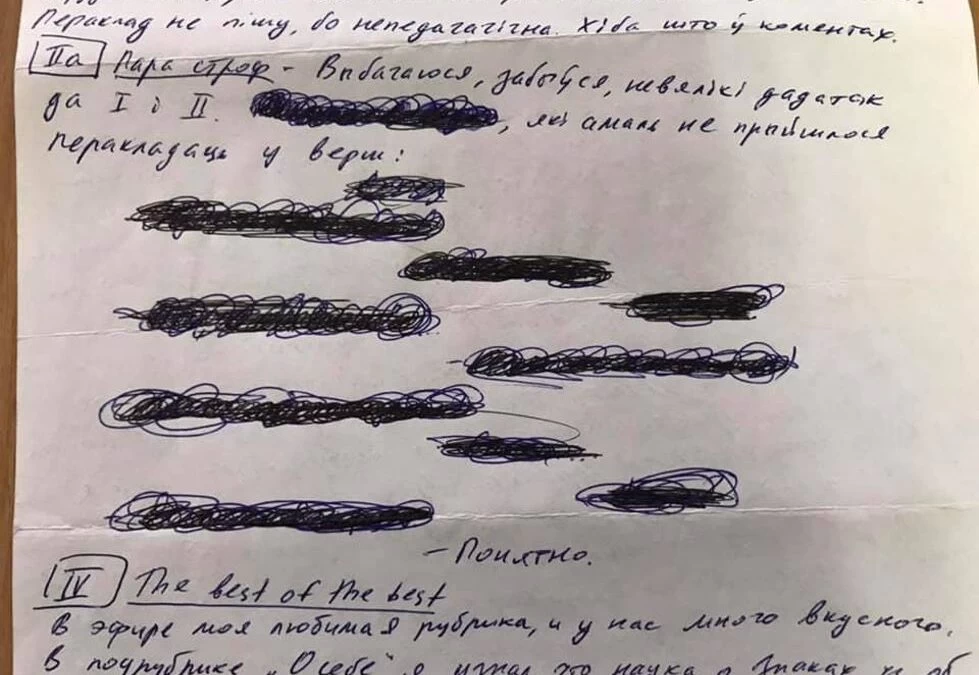 Пераклад не пішу, бо непедагагічна. Хіба што ў коментах.
IIa Пара строф - Выбачаюся, забыўся, невялікі дадатак
да I і II. , які амаль не прыйшлося
перакладаць у верш:
- Понятно.
IV The best of the best
В эфире моя любимая рубрика, и у нас много вкусного.
В подрубрике „О себе“ я узнал, что наука о знаках и об